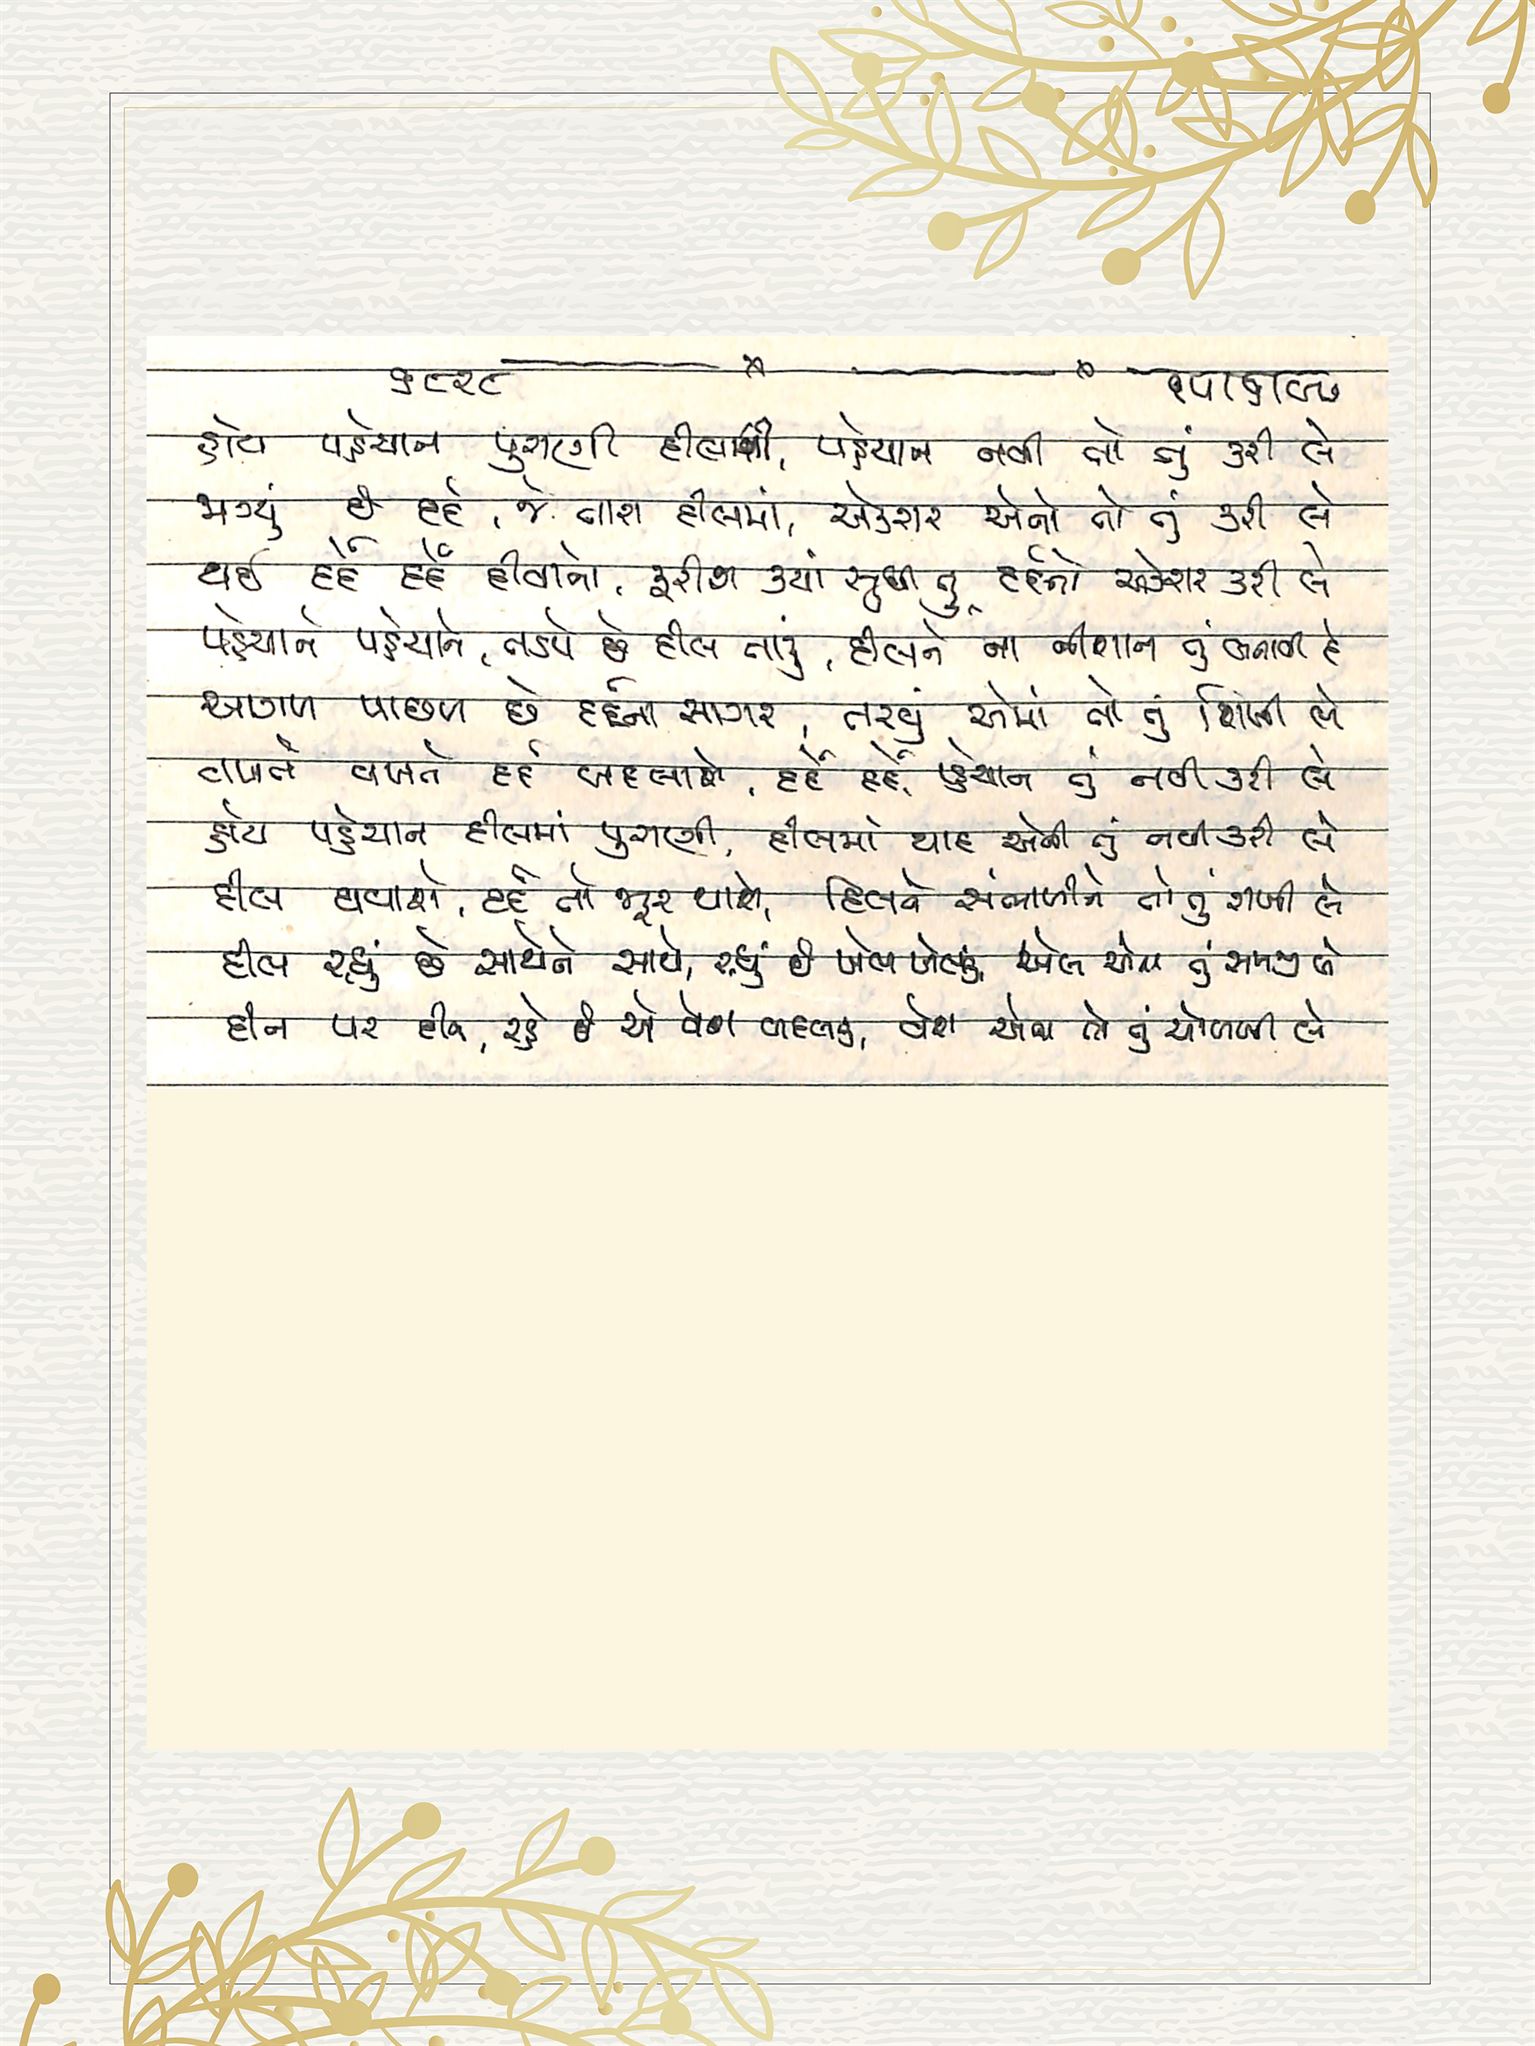 ૧૮૨૮
હોય પહેચાન પુરાણી દીલની, પહેચાન નવી તો તું કરી લે
ભર્યું છે દર્દ, જે તારા દીલમાં, એકરાર એનો તો તું કરી લે
થઈ દર્દે દર્દે દીવાનો, ફરીશ ક્યાં સુધી તું, દર્દનો એકરાર કરી લે
પહેચાને પહેચાને, તડપે છે દીલ તારું, દીલને ના નીશાન તું બનાવી દે
આગળ પાછળ છે દર્દના સાગર, તરવું એમાં તો તું શિખી લે
વખતે વખતે દર્દ બદલાશે, દર્દે દર્દે, પહેચાન તું નવી કરી લે
હોય પહેચાન દીલમાં પુરાણી, દીલમાં યાદ એની તું નવી કરી લે
દીલ ઘવાશે, દર્દ તો જરૂર થાશે, દિલને સંભાળીને તો તું રાખી લે
દીલ રહ્યું છે સાથેને સાથે, રહ્યું છે ખેલ ખેલતું, ખેલ એના તું સમજી લે
દીન પર દીન, રહે છે એ વેશ બદલતું, વેશ એના તો તું ઓળખી લે